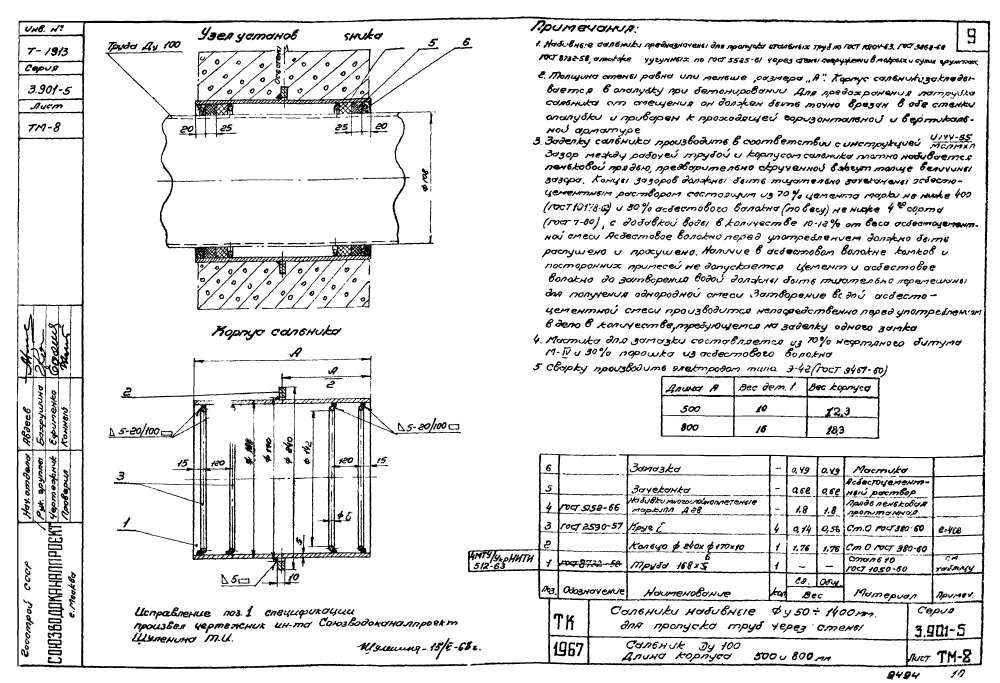 Инв. №
Т-1913
Серия
3.901-5
Лист
ТМ-8
Нач. отдела Авдеев
Рук. группы Бахрушина
Чертежник Ефименко
Проверил
Госстрой СССР
СОЮЗВОДОКАНАЛПРОЕКТ
г. Москва
Узел установ   ьника
Труба Ду 100
Ось стены
5
6
20
25
25
20
ф 108
Корпус сальника
А
А/2
2
5-20/100
5-20/100
15
120
120
15
ф 170
ф 240
ф 142
3
ф 6
1
5
5
10
Исправление поз. 1 спецификации
произвел чертежник ин-та Союзводоканалпроект
Шуленина Т.И.
Примечания:
9
1. Набивные сальники предназначены для пропуска стальных труб по ГОСТ 10704-63, ГОСТ 3262-62
ГОСТ 8732-58, а также чугунных по ГОСТ 5525-61 через стены сооружений в мокрых и сухих грунтах.
2. Толщина стены равна или меньше размера „А". Корпус сальника заклады-
вается в опалубку при бетонировании. Для предохранения патрубка
сальника от смещения он должен быть точно врезан в обе стенки
опалубки и приварен к проходящей горизонтальной и вертикаль-
ной арматуре
3. Заделку сальника производить в соответствии с инструкцией
Зазор между рабочей трубой и корпусом сальника плотно набивается
пеньковой прядью, предварительно скрученной в жгут толще величины
зазора. Концы зазоров должны быть тщательно зачеканены асбесто-
цементным раствором состоящим из 70% цемента марки не ниже 400
(ГОСТ 10178-62) и 30% асбестового волокна (по весу) не ниже 4го сорта
(ГОСТ 7-60), с добавкой воды в количестве 10-12% от веса асбестоцемент-
ной смеси Асбестовое волокно перед употреблением должно быть
распушено и просушено. Наличие в асбестовом волокне комков и
посторонних примесей не допускается Цемент и асбестовое
волокно до затворения водой должны быть тщательно перемешаны
для получения однородной смеси Затворение водой асбесто-
цементной смеси производится непосредственно перед употреблением
в дело в количестве, требующемся на заделку одного замка
4. Мастика для замазки составляется из 70% нефтяного битума
М-IV и 30% порошка из асбестового волокна
5 Сварку производить электродом типа Э-42 (ГОСТ 9467-60)
Длина А Вес дет. 1 Вес корпуса
500 10 12,3
800 16 18,3
6 Замазка - 0,49 0,49 Мастика
5 Зачеканка - 0,62 0,62 Асбестоцемент-ный раствор
4 ГОСТ 5152-66 Набивки многослойноплетеные марки ПП д 28 - 1,8 1,8 Прядь пеньковая пропитанная
3 ГОСТ 2590-57 Круг 6 4 0,14 0,56 Ст.0 ГОСТ 380-60
2 Кольцо ф 240х ф 170х10 1 1,76 1,76 Ст 0 ГОСТ 380-60
4МТУ/УкрНИТИ 512-63 1 ГОСТ 8732-58 Труба 168х5 6 1 - - Сталь 10 ГОСТ 1050-60 см таблицу
Поз. Обозначение Наименование Кол Ед. Общ. Вес Материал Примеч.
ТК
1967
Сальники набивные Фу 50÷1400 мм.
для пропуска труб через стены
Серия
3.901-5
Сальник Ду 100
Длина корпуса 500 и 800 мм
Лист ТМ-8
9494 10